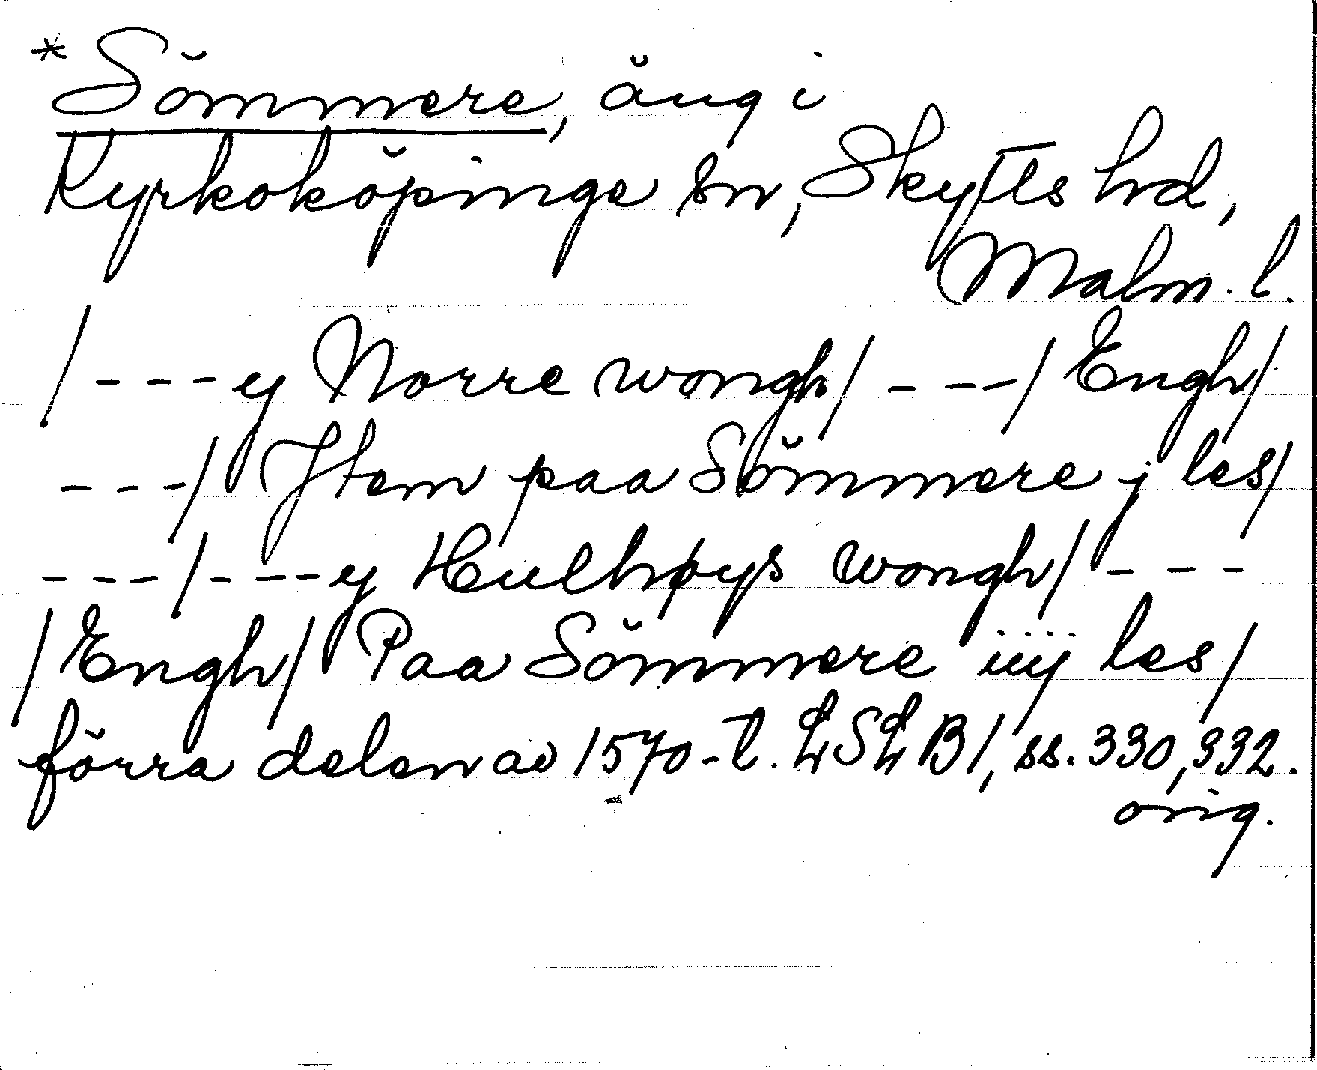 *Sömmere, äng i
Kyrkoköpinge sn, Skytts hd,
Malm. l.
/---y Norre wongh/---/Engh/
---/Jtem paa Sömmere j les/
---/---y Hulhøys wongh/---
/Engh/ Paa Sömmere iiij les/
förra delen av 1570-t. LSLB1, ss. 330, 332.
orig.